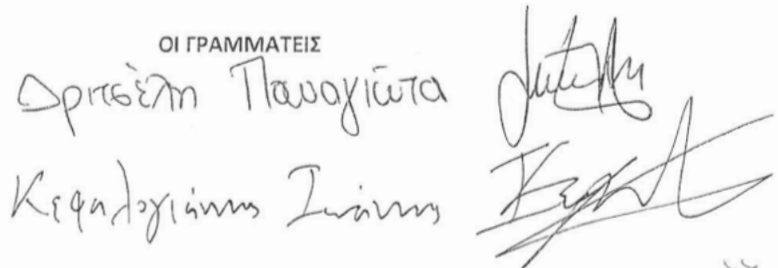 ΟΙ ΓΡΑΜΜΑΤΕΙΣ
Δριτσέλη Παναγιώτα
Κεφαλογιάννης Ιωάννης